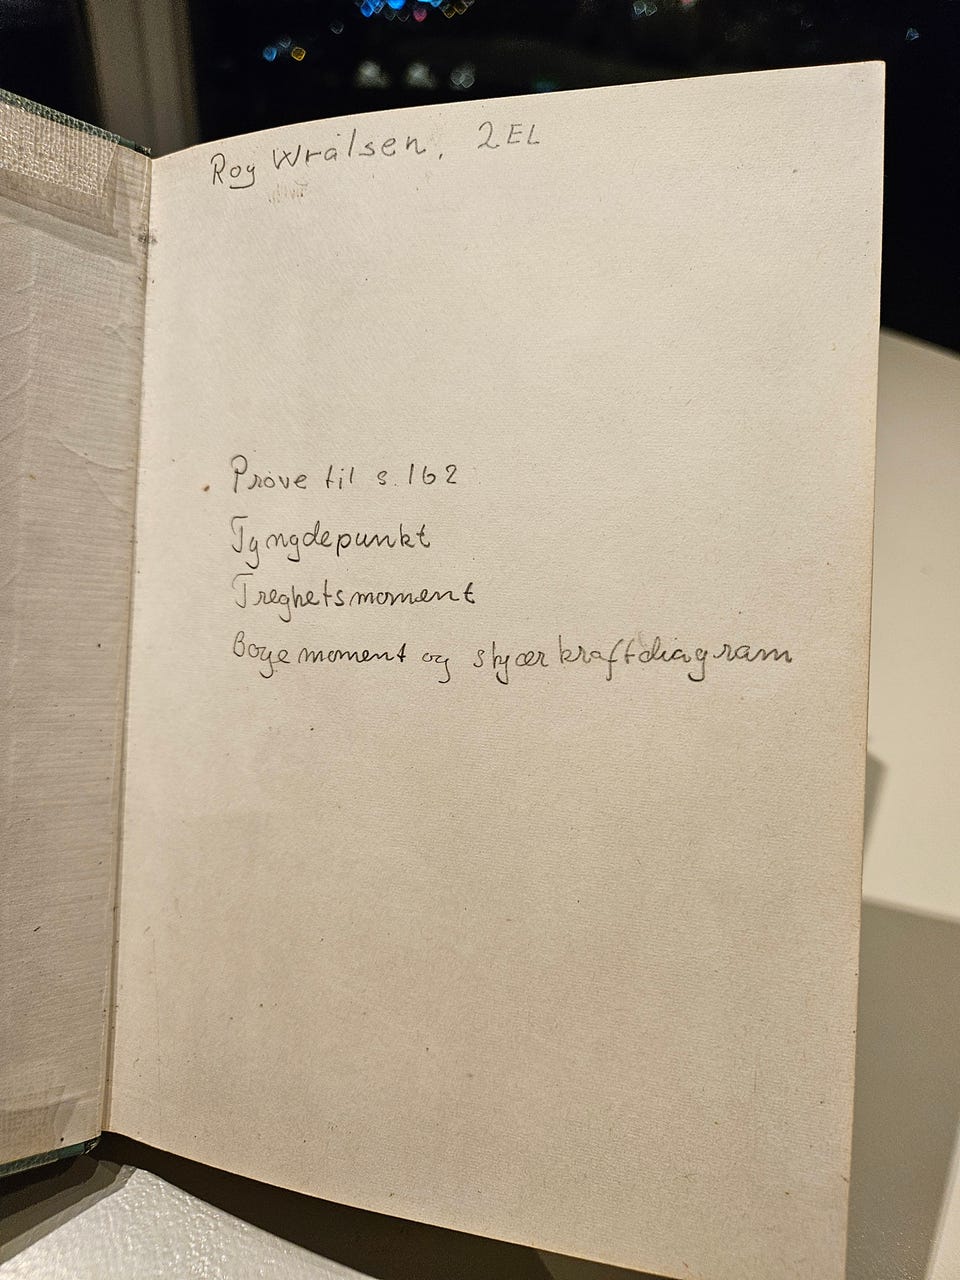 Roy Wrålsen, 2EL
Prøve til s. 162
Tyngdepunkt
Treghetsmoment
Bøyemoment og skjærkraftdiagram